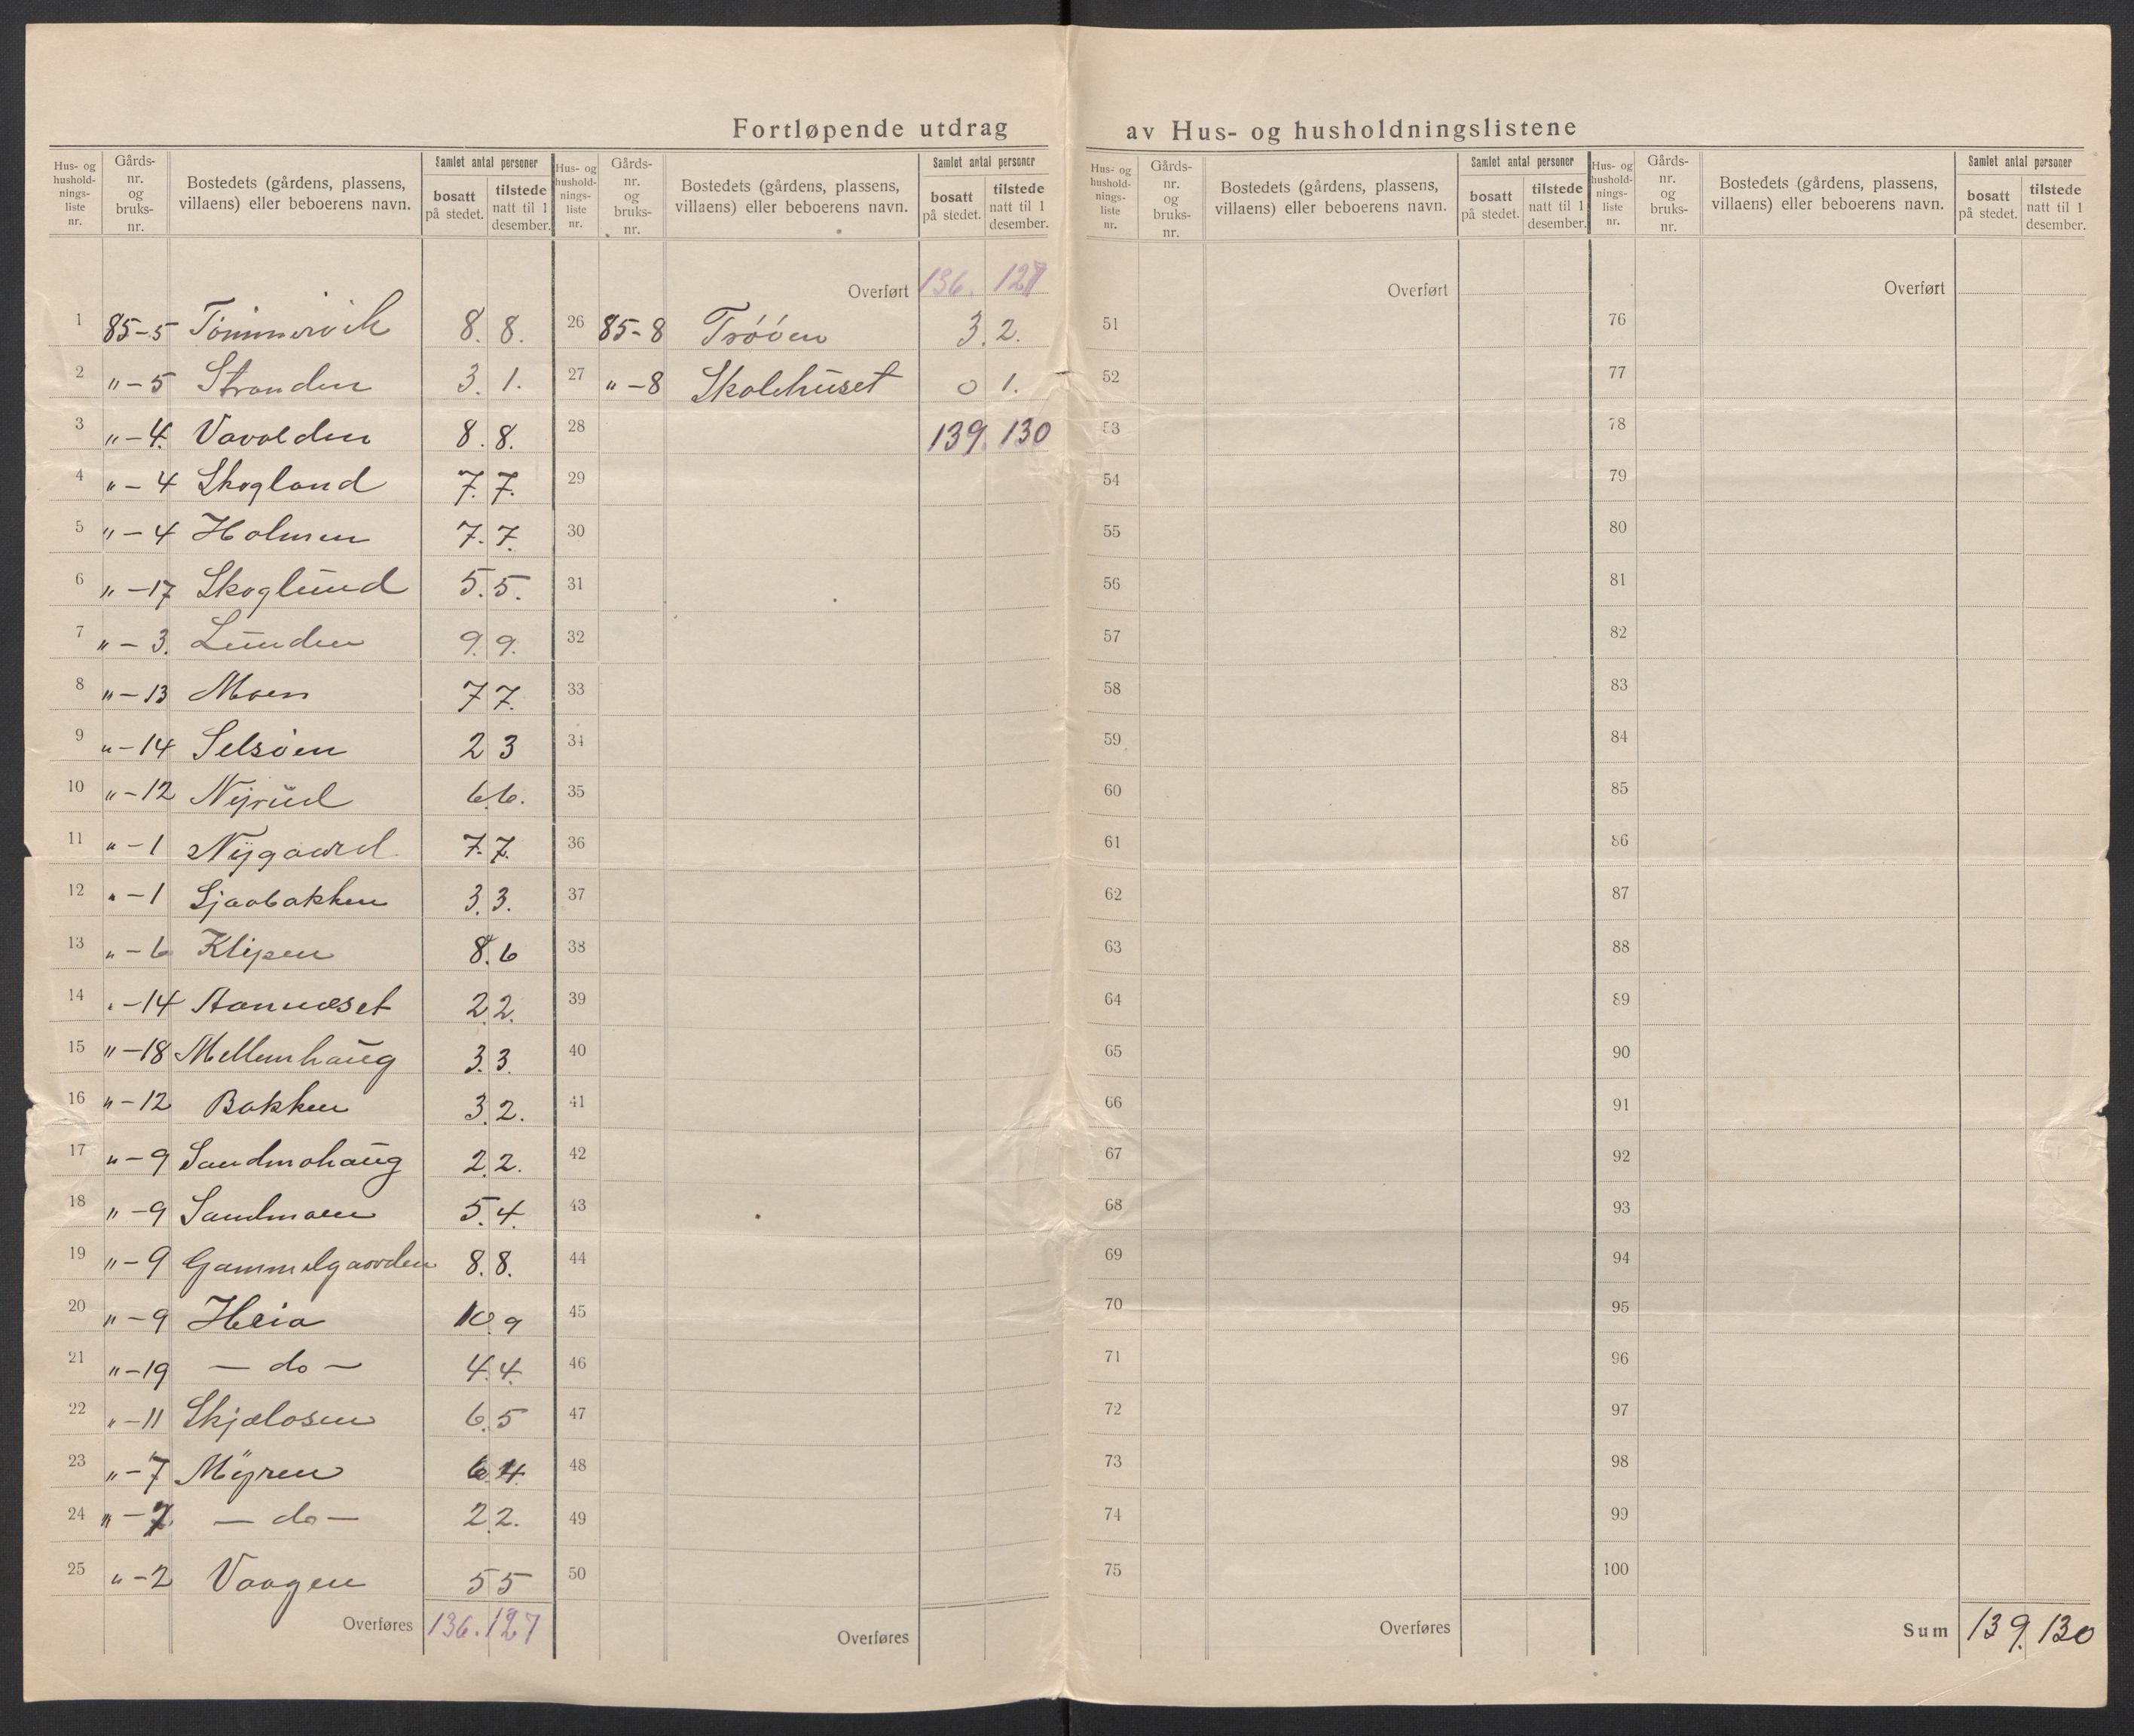 Fortløpende utdrag av Hus- og husholdningslistene
Hus- og husholdnings-liste nr. Gårds-nr. og bruks-nr. Bostedets (gårdens, plassens, villaens) eller beboerens navn. Samlet antal personer bosatt på stedet. tilstede natt til 1 desember.
1 85-5 Tømmervik 8. 8.
2 „-5 Stranden 3. 1.
3 „-4. Vavolden 8. 8.
4 „-4 Skogland 7. 7.
5 „-4 Holmen 7. 7.
6 „-17 Skoglund 5. 5.
7 „-3. Lunden 9. 9.
8 „-13 Moen 7 7.
9 „-14 Selsøen 2 3
10 „-12 Nyrud 6. 6.
11 „-1 Nygaard 7. 7.
12 „-1 Sjaabakken 3. 3.
13 „-6 Klipen 8. 6
14 „-14 Aanneset 2 2.
15 „-18 Mellemhaug 3. 3.
16 „-12 Bakken 3. 2.
17 „-9 Sandmohaug 2. 2.
18 „-9 Sandmoen 5. 4.
19 „-9 Gammelgaarden 8. 8.
20 „-9 Heia 10. 9
21 „-19 — do — 4. 4.
22 „-11 Skjelosen 6. 5
23 „-7 Myren 6. 4
24 „-7. — do — 2 2.
25 „-2 Vaagen 5 5
Overføres 136. 127
Hus- og husholdnings-liste nr. Gårds-nr. og bruks-nr. Bostedets (gårdens, plassens, villaens) eller beboerens navn. Samlet antal personer bosatt på stedet. tilstede natt til 1 desember.
Overført 136. 127
26 85-8 Trøøen 3. 2.
27 „-8 Skolehuset 0 1.
28 139. 130
29
30
31
32
33
34
35
36
37
38
39
40
41
42
43
44
45
46
47
48
49
50
Overføres
Hus- og husholdnings-liste nr. Gårds-nr. og bruks-nr. Bostedets (gårdens, plassens, villaens) eller beboerens navn. Samlet antal personer bosatt på stedet. tilstede natt til 1 desember.
Overført
51
52
53
54
55
56
57
58
59
60
61
62
63
64
65
66
67
68
69
70
71
72
73
74
75
Overføres
Hus- og husholdnings-liste nr. Gårds-nr. og bruks-nr. Bostedets (gårdens, plassens, villaens) eller beboerens navn. Samlet antal personer bosatt på stedet. tilstede natt til 1 desember.
Overført
76
77
78
79
80
81
82
83
84
85
86
87
88
89
90
91
92
93
94
95
96
97
98
99
100
Sum 139. 130